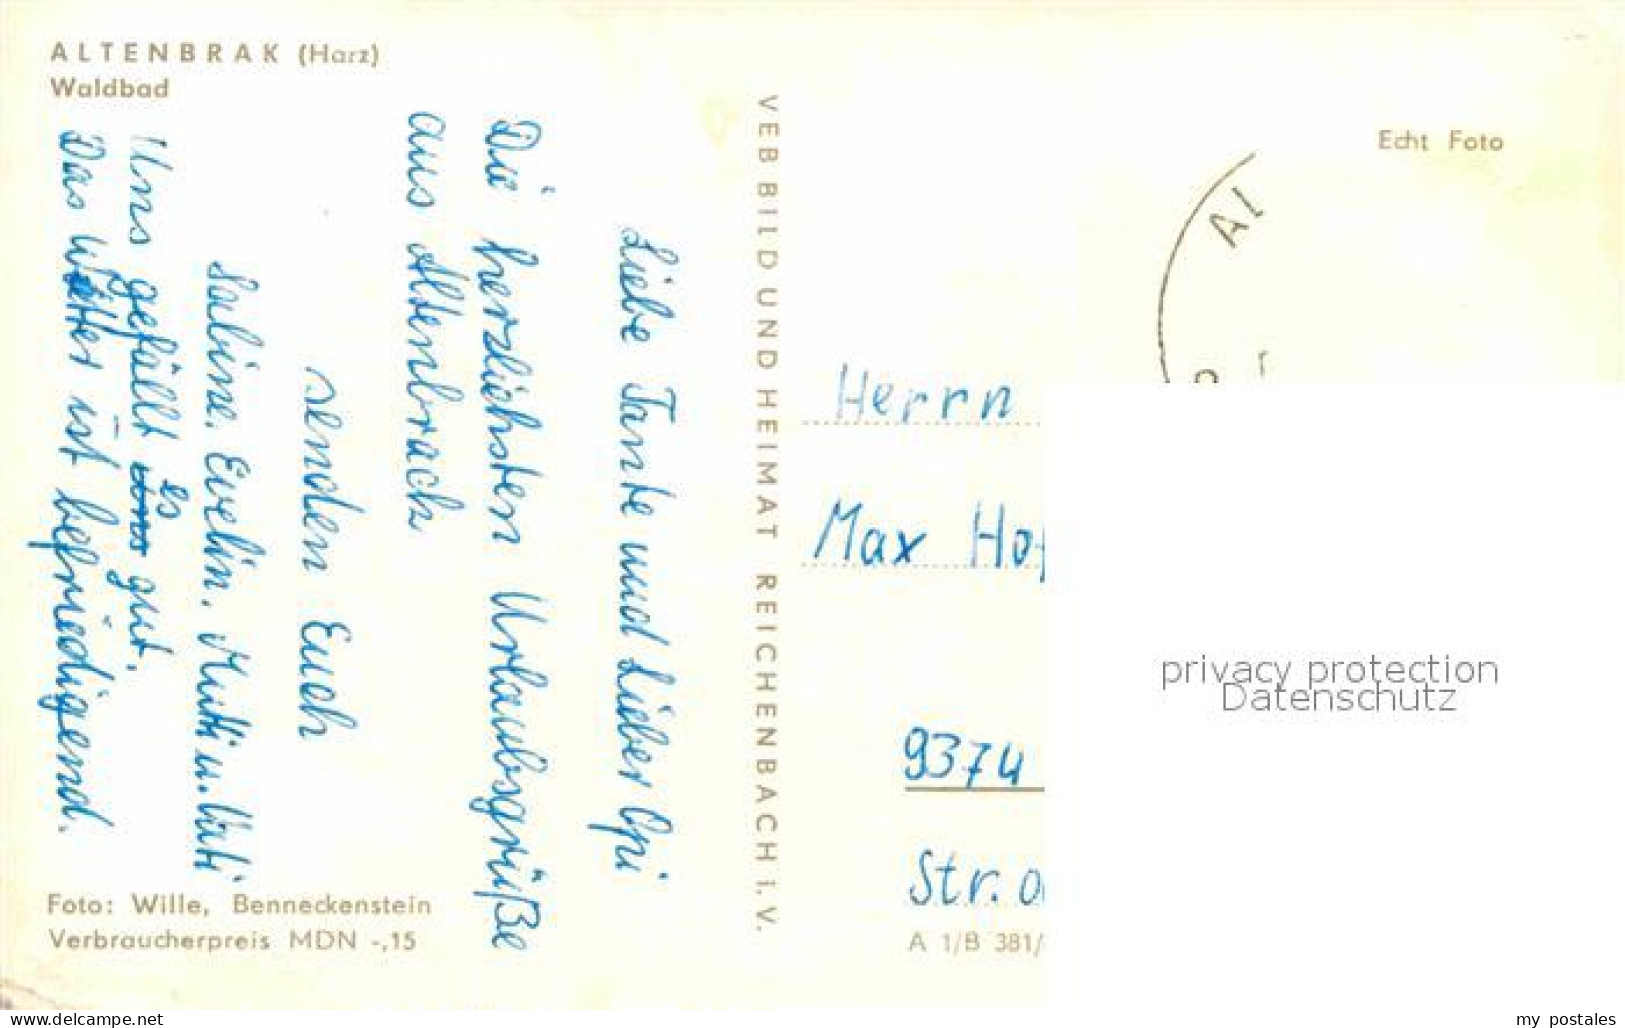 ALTENBRAK (Harz)
Waldbad
Liebe Tante und Lieber Opi
Die herzlichsten Urlaubsgrüße
aus Altenbrach
senden Euch
Sabine. Evelin. Mutti u. Vati
Uns gefällt uns es gut.
Das Wetter ist befriedigend.
Foto: Wille, Benneckenstein
Verbraucherpreis MDN -,15
VEB BILD UND HEIMAT REICHENBACH I. V.
Echt Foto
Al
Herrn
Max Hof
9374
Str.
A 1/B 381/
privacy protection
Datenschutz
www.delcampe.net
my_postales